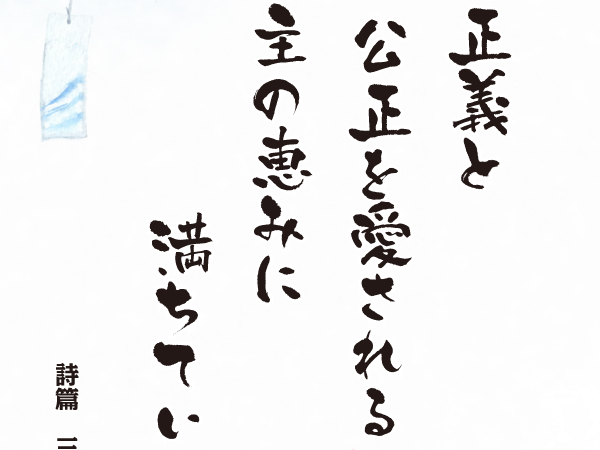 正義と
公正を愛される
主の恵みに
満ちてい
詩篇 三